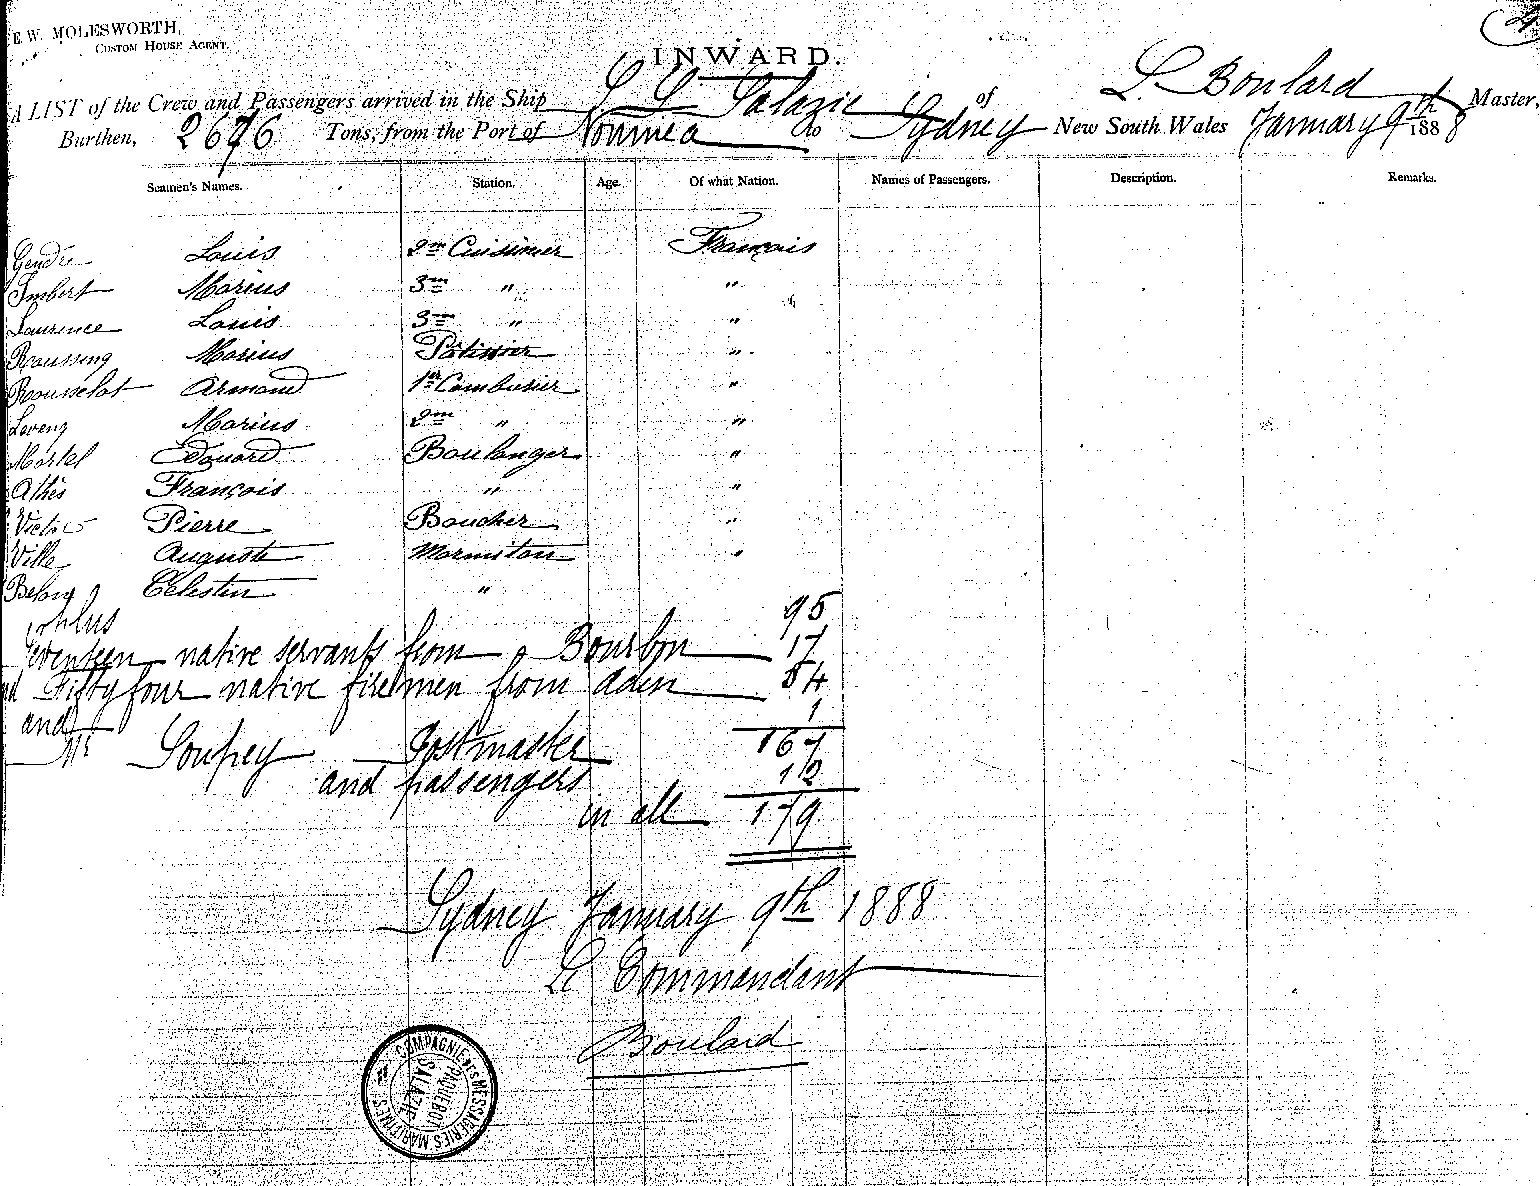 E. W. MOLESWORTH,
CUSTOM HOUSE AGENT.
INWARD.
A LIST of the Crew and Passengers arrived in the Ship S S Salazie of L. Boulard Master,
Burthen, 2676 Tons, from the Port of Noumea to Sydney New South Wales January 9th 1888
Seamen's Names. Station. Age. Of what Nation. Names of Passengers. Description. Remarks.
Gendre Louis 2me Cuisinier Français
Imbert Marius 3me " "
Laurence Louis 3me " "
Marius Pâtissier "
Rousselot Armand 1er Cambusier "
Marius 2me " "
Martel Edouard Boulanger "
Athès François " "
Victor Pierre Boucher "
Ville Auguste Marmiton "
Celestin "
95
plus
Seventeen native servants from Bourbon 17
and Fifty four native firemen from Aden 54
and 1
Mr Soupey Postmaster 167
and passengers 12
in all 179
Sydney January 9th 1888
Le Commandant
Boulard
COMPAGNIE DES MESSAGERIES MARITIMES
PAQUEBOT
SALAZIE